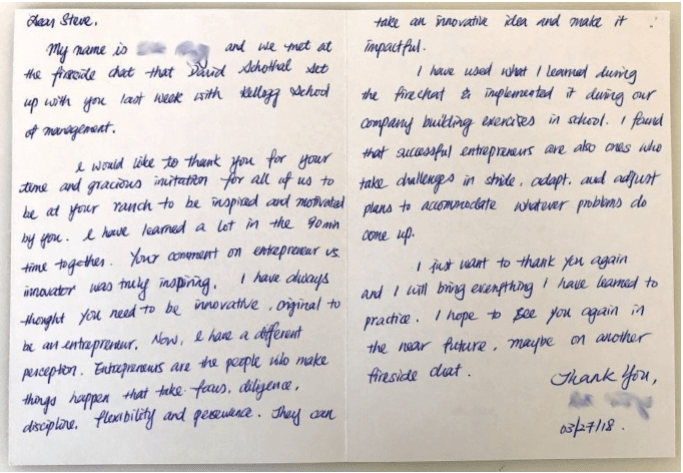 Dear Steve,
My name is and we met at
the fireside chat that David Schothal set
up with you last week with Kellogg School
of management.
I would like to thank you for your
time and gracious invitation for all of us to
be at your ranch to be inspired and motivated
by you. I have learned a lot in the 90 min
time together. Your comment on entrepreneur vs.
innovator was truly inspiring. I have always
thought you need to be innovative, original to
be an entrepreneur. Now, I have a different
perception. Entrepreneurs are the people who make
things happen that take focus, diligence,
discipline, flexibility and perseverance. They can
take an innovative idea and make it
impactful.
I have used what I learned during
the firechat & implemented it during our
company building exercises in school. I found
that successful entrepreneurs are also ones who
take challenges in stride, adapt, and adjust
plans to accommodate whatever problems do
come up.
I just want to thank you again
and I will bring everything I have learned to
practice. I hope to see you again in
the near future, maybe on another
fireside chat.
Thank you,
03/27/18.